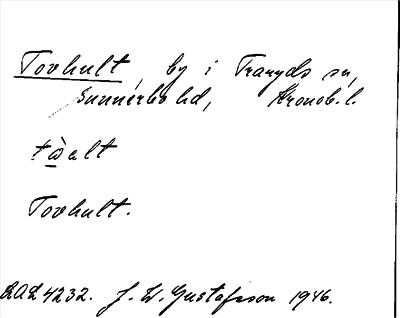 Tovhult, by i Traryds sn,
Sunnerbo hd, Kronob. l.
tὼalt
Tovhult.
OAL 4232. J. W. Gustafsson 1946.